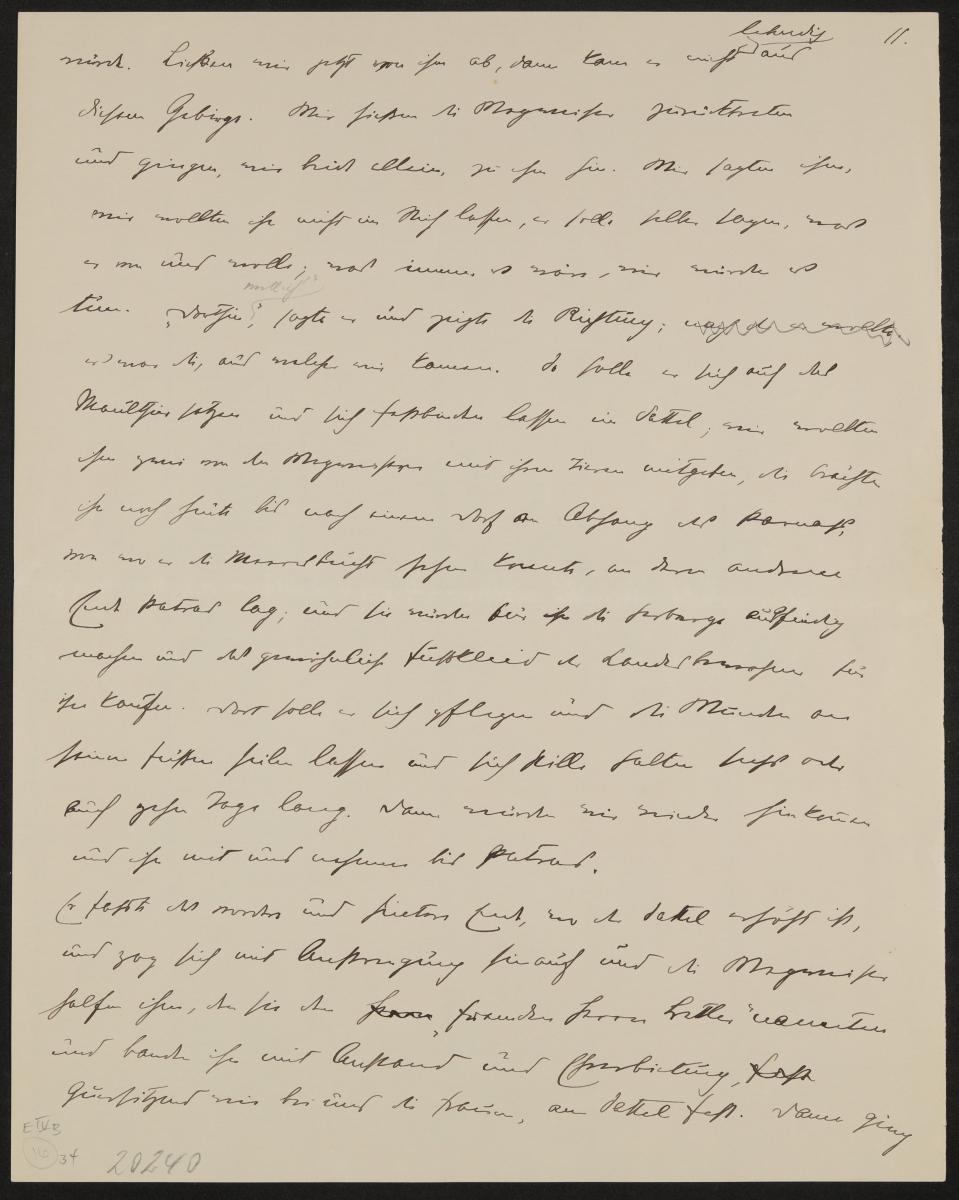 lebendig 11.
würde. Ließen wir jetzt von ihm ab, dann kam er nicht aus
diesem Gebirge. Wir hießen die Wegweiser zurücktreten
und gingen, wir beide allein, zu ihm hin. Wir sagten ihm,
wir wollten ihn nicht im Stich lassen, er solle selber sagen, was
er von uns wolle; was immer es wäre, wir würden es
tun. „Dorthin", sagte er und zeigte die Richtung; nach der er wollte
es war die, aus welcher wir kamen. So solle er sich auf das
Maulthier setzen und sich festbinden lassen im Sattel; wir wollten
ihm zwei von den Wegweisern mit ihren Tieren mitgeben, die brächten
ihn noch heute bis nach einem Dorf am Abhang des Parnass,
von wo er die Meeresbucht sehen konnte, an deren anderem
End Patras lag; und sie würden für ihn die Herberge ausfindig
machen und das gewöhnliche Fusskleid der Landesbewohner für
ihn kaufen. Dort solle er sich pflegen und die Wunden an
seinen Füssen heilen lassen und sich stille halten sechs oder
auch zehn Tage lang. Dann würden wir wieder hinkommen
und ihn mit uns nehmen bis Patras.
Er fasste das vordere und hintere End, wo der Sattel erhöht ist,
und zog sich mit Anstrengung hinauf und die Wegweiser
halfen ihm, den sie den fremden Herrn Bettler" nannten
und banden ihn mit Anstand und Ehrerbietung, fest
quersitzend wie bei uns die Frauen, am Sattel fest. Dann ging
E IV B
16
34
20240